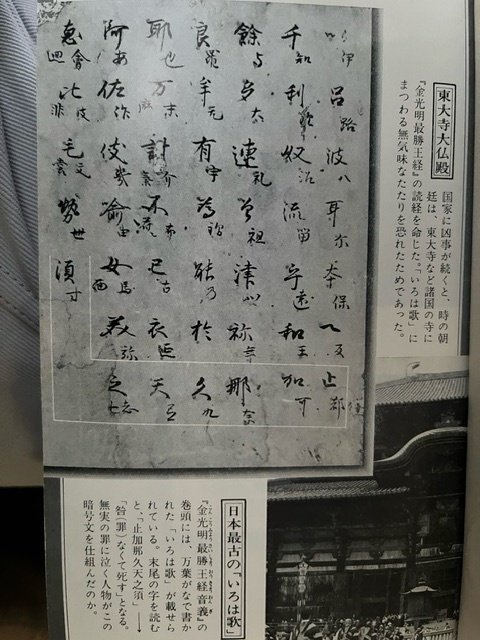 東大寺大仏殿
国家に凶事が続くと、時の朝
廷は、東大寺など諸国の寺に
『金光明最勝王経』の読経を命じた。「いろは歌」に
まつわる無気味なたたりを恐れたためであった。
伊 呂路 波八 耳尓 本保 へ反 止都
千知 利理 奴沼 流留 乎遠 和王 加可
餘与 多太 連礼 曽祖 津 祢年 那奈
良羅 牟无 有宇 為謂 能乃 於 久九
耶也 万末麻 計介 不布 己古 衣延 天
阿安 佐作 伎畿 喩由 女馬面 美弥 之志士
恵會廻 比皮非 毛文裳 勢世 須寸
日本最古の「いろは歌」
『金光明最勝王経音義』の
巻頭には、万葉がなで書か
れた「いろは歌」が載せら
れている。末尾の字を読む
と、「止加那久天之須」→
「咎(罪)なくて死す」となる。
無実の罪に泣く人物がこの
暗号文を仕組んだのか。